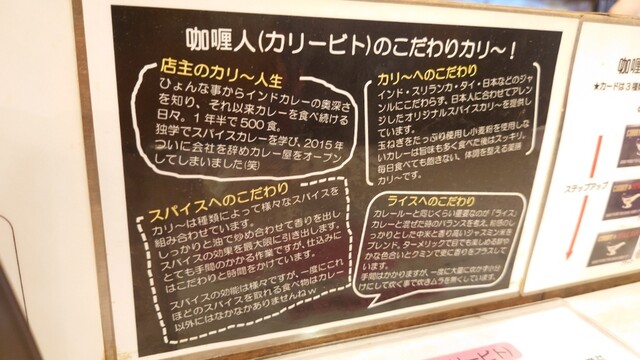 咖喱人(カリービト)のこだわりカリ〜!
店主のカリ〜人生
ひょんな事からインドカレーの奥深さ
を知り、それ以来カレーを食べ続ける
日々。1年半で500食。
独学でスパイスカレーを学び、2015年
ついに会社を辞めカレー屋をオープン
してしまいました(笑)
カリ〜へのこだわり
インド・スリランカ・タイ・日本などのジャ
ンルにこだわらず、日本人に合わせてアレン
ジしたオリジナルスパイスカリ〜を提供し
ています。
玉ねぎをたっぷり使用し小麦粉を使用しな
いカレーは旨味も多く食べた後はスッキリ。
毎日食べても飽きない、体調を整える薬膳
カリ〜です。
スパイスへのこだわり
カリ〜は種類によって様々なスパイスを
組み合わせています。
しっかりと油で炒め合わせて香りを出し
スパイスの効果を最大限に引き出します。
とても手間のかかる作業ですが、仕込みに
はこだわりと時間をかけています。
スパイスの効能は様々ですが、一度にこれ
ほどのスパイスを取れる食べ物はカレー
以外にはなかなかありませんねw
ライスへのこだわり
カレールーと同じくらい重要なのが「ライス」
カレーと混ぜた時のバランスを考え、和感のし
っかりとした中米と香り高いジャスミン米を
ブレンド。ターメリックで目でも楽しめる鮮や
かな色合いとクミンで更に香りをプラスして
います。
手間はかかりますが、一度に大量に炊かず小分
けにして炊く事で炊きムラを無くしています。
咖喱
★カードは3種
ステップアップ